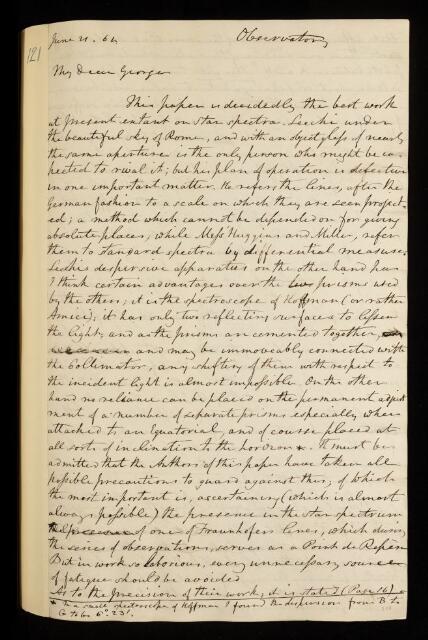 121
June 21. 64
Observatory
My Dear George
This paper is decidedly the best work
at present extant on Star spectra. Secchi under
the beautiful sky of Rome, and with an object glass of nearly
the same aperture is the only person who might be ex-
pected to rival it; but his plan of operation is defective
in one important matter. He refers the lines, after the
German fashion to a scale on which they are seen project-
ed; a method which cannot be depended on for giving
absolute places, while Messrs Huggins and Miller, refer
them to standard spectra by differential measures.
Secchi's dispersive apparatus on the other hand has
I think certain advantages over the two prisms used
by the others; it is the spectroscope of Hoffman (or rather
Amici); it has only two reflecting surfaces to lessen
the light; and as the prisms are cemented together,
and may be immoveably connected with
the Collimator, any shifting of them with respect to
the incident light is almost impossible. On the other
hand no reliance can be placed on the permanent adjust
ment of a number of separate prisms especially when
attached to an Equatorial, and of course placed at
all sorts of inclination to the horizon. It must be
admitted that the Authors of this paper have taken all
possible precautions to guard against this; of which
the most important is, ascertaining (which is almost
always possible) the presence in the star spectrum
of one of Fraunhofers lines, which during
the series of observations, serves as a Point de Repère
But in work so laborious, every unnecessary source
of fatigue should be avoided
As to the precision of their work, it is stated (Page 16)
* In a small spectroscope of Hoffman I found the dispersion from B to
G to be 6°.23'.